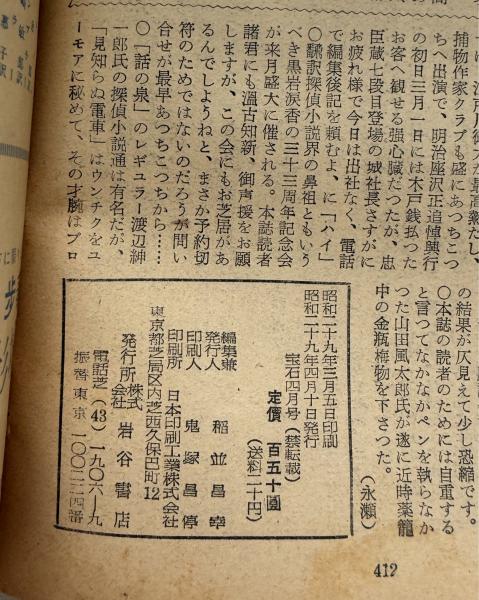 捕物作家クラブも盛にあつちこつ
ちへ出演で、明治座沢正追悼興行
の初日三月一日には木戸銭払つた
お客へ観せる强心臓だつたが、忠
臣蔵七段目登場の城社長さすがに
お疲れ様で今日は出社なく、電話
で編集後記を頼むよ、に「ハイ」
○飜訳探偵小説界の鼻祖ともいう
べき黒岩淚香の三十三周年記念会
が来月盛大に催される。本誌読者
諸君にも溫古知新、御声援をお願
しますが、この会にもお芝居があ
るんでしようねと、まさか予約切
符のためではないのだろうが問い
合せが最早あつちこつちから……
○「話の泉」のレギュラー渡辺紳
一郎氏の探偵小説通は有名だが、
「見知らぬ電車」はウンチクをユ
ーモアに秘めて、その才腕はプロ
の結果が仄見えて少し恐縮です。
○本誌の読者のためには自重する
と言つてなかなかペンを執らなか
つた山田風太郎氏が遂に近時薬籠
中の金瓶梅物を下さつた。
(永瀬)
昭和二十九年三月五日印刷
昭和二十九年四月十日発行
宝石四月号(禁転載)
定價 百五十圓
(送料二十円)
編集兼
発行人 稲並昌幸
印刷人 鬼塚昌停
印刷所 日本印刷工業株式会社
東京都芝居区内芝西久保巴町12
発行所 株式会社 岩谷書店
電話芝(43)一九〇六―九
振替東京 一〇〇三二四番
412